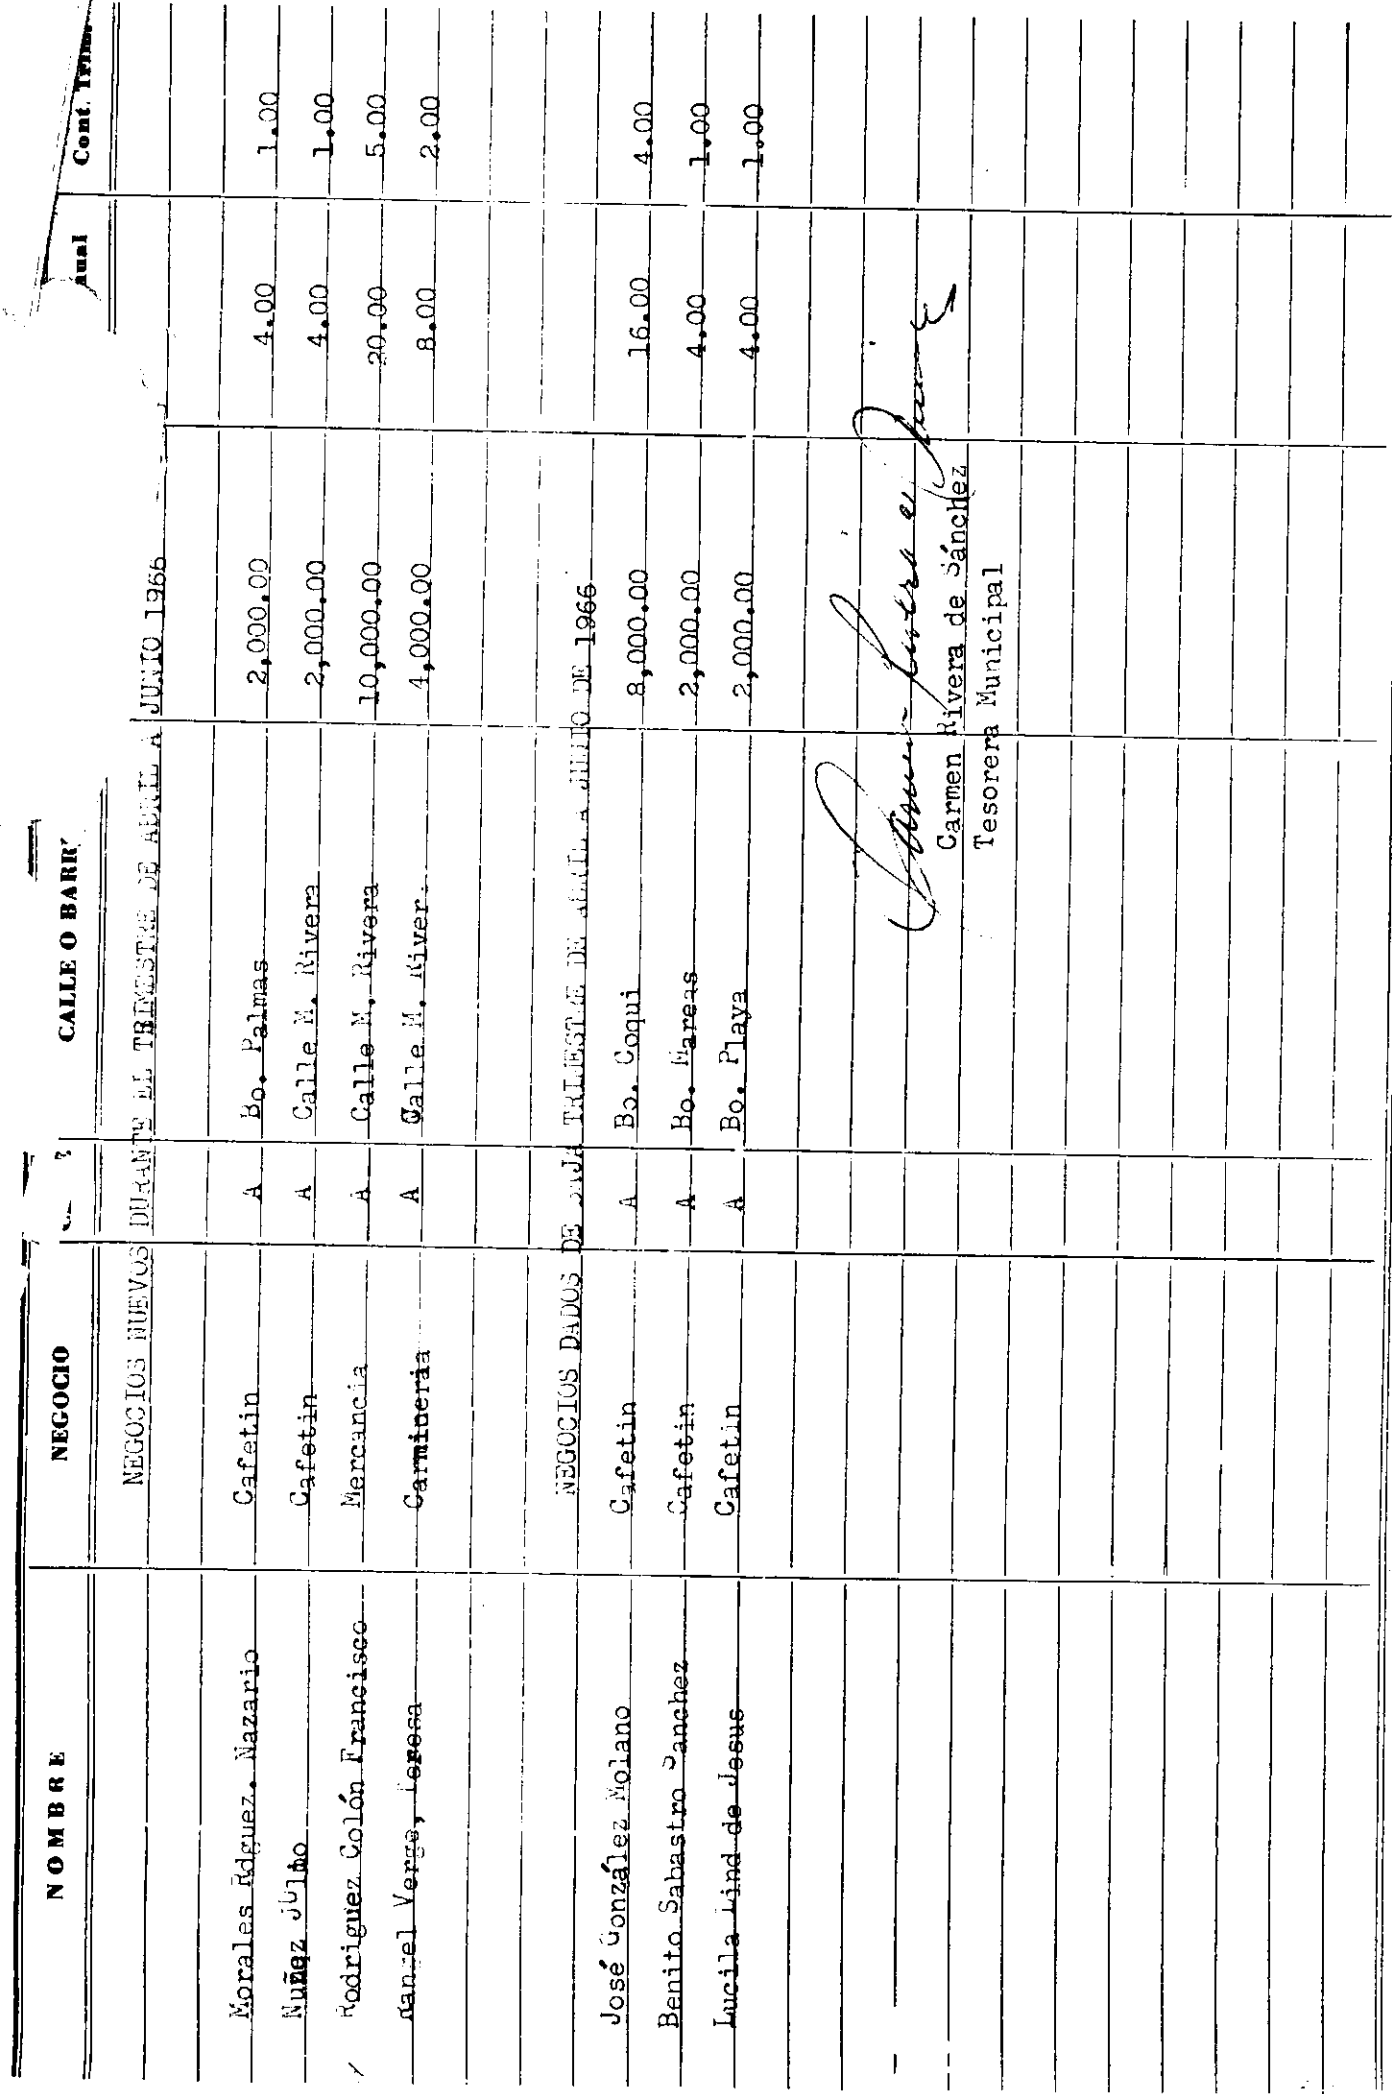 NOMBRE NEGOCIO CALLE O BARR nual Cont. Trim.
NEGOCIOS NUEVOS DURANTE EL TRIMESTRE DE ABRIL A JUNIO 1966
Morales Rdguez. Nazario Cafetin A Bo. Palmas 2,000.00 4.00 1.00
Nuñez Cafetin A Calle M. Rivera 2,000.00 4.00 1.00
Rodriguez Colón Francisco Mercancia A Calle M. Rivera 10,000.00 20.00 5.00
Rangel Verge, Teresa Carniceria A Calle M. River. 4,000.00 8.00 2.00
NEGOCIOS DADOS DE BAJA TRIMESTRE DE ABRIL A JUNIO DE 1966
José González Molano Cafetin A Bo. Coqui 8,000.00 16.00 4.00
Benito Sabastro Sanchez Cafetin A Bo. Mareas 2,000.00 4.00 1.00
Lucila Lind de Jesus Cafetin A Bo. Playa 2,000.00 4.00 1.00
Carmen Rivera de Sánchez
Tesorera Municipal